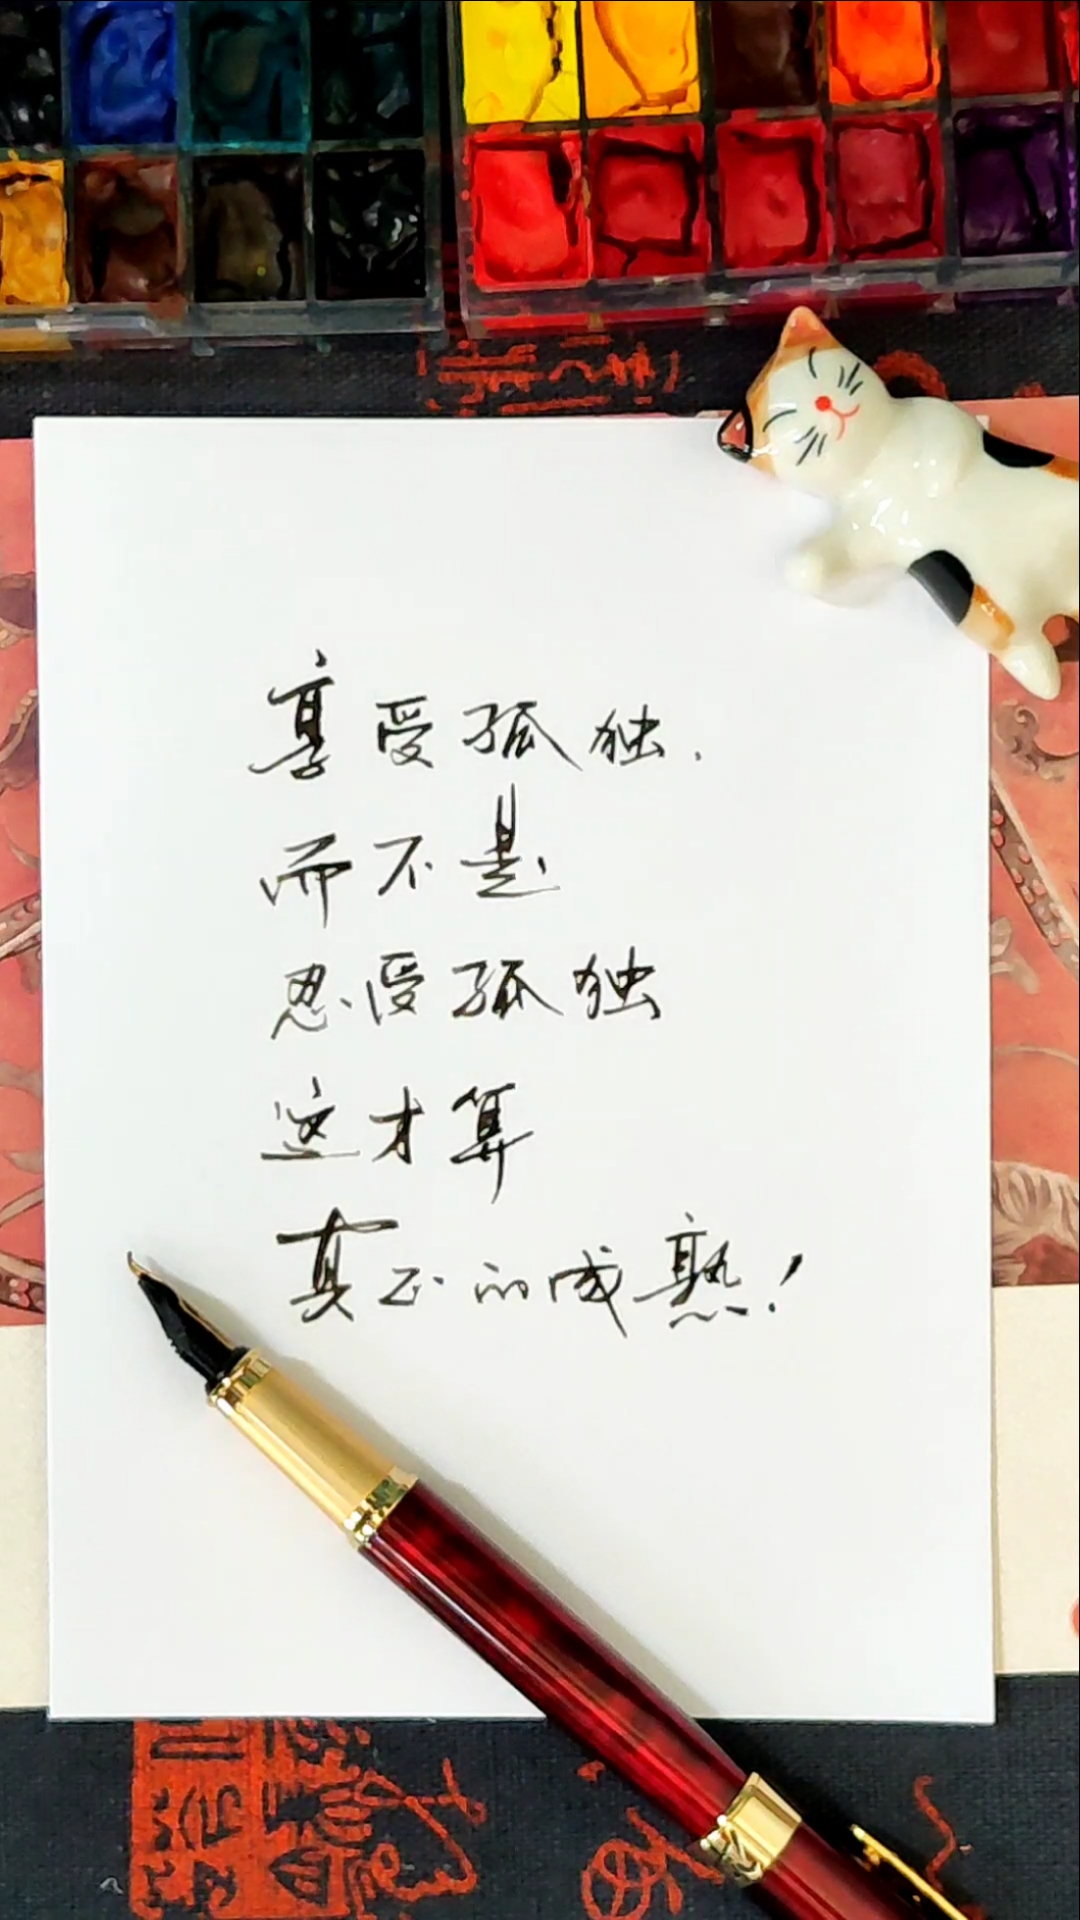 享受孤独.
而不是
忍受孤独
这才算
真正的成熟!